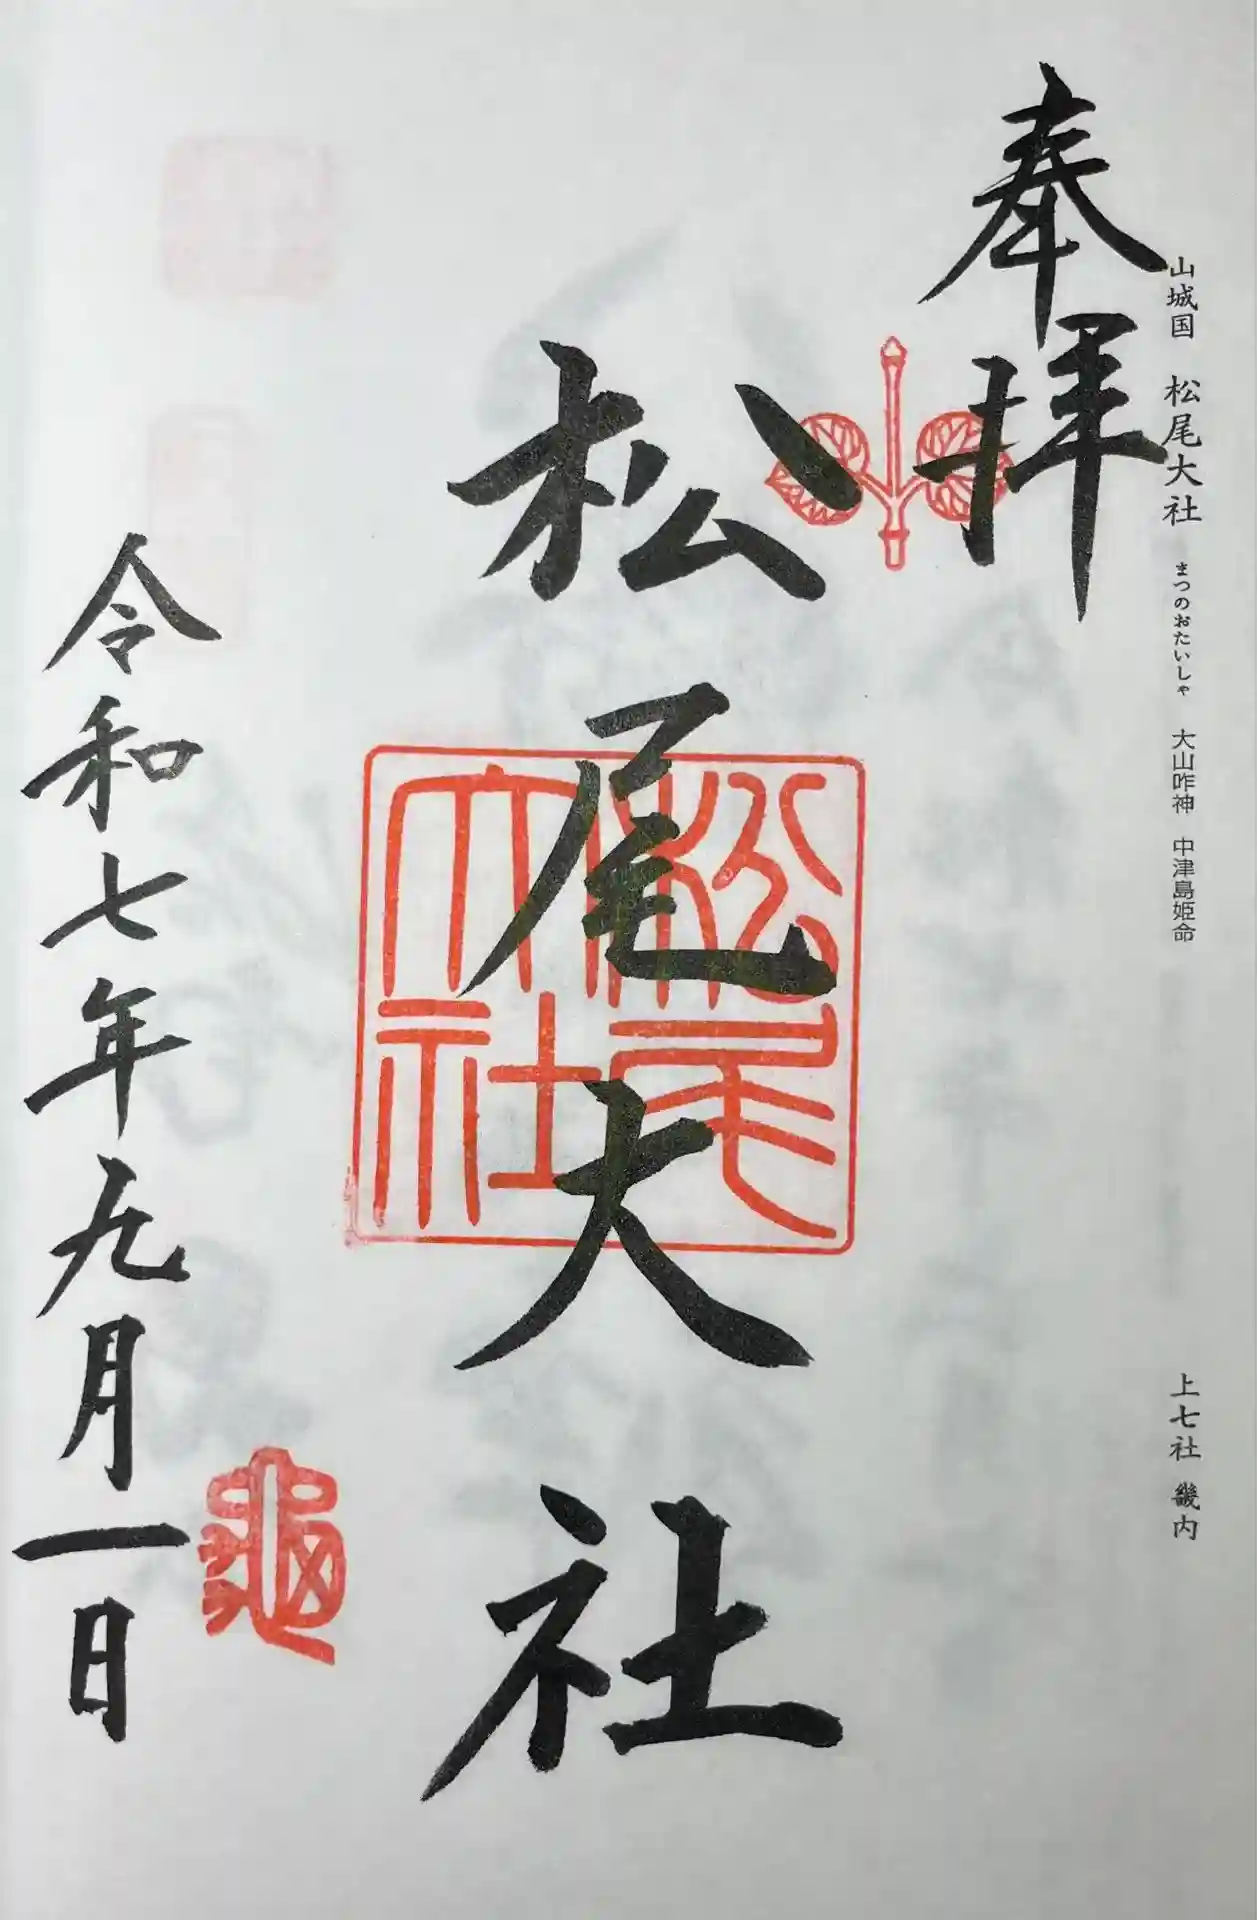 山城国 松尾大社 まつのおたいしゃ 大山咋神 中津島姫命
上七社 畿内
奉拝
松尾大社
松尾
大社
令和七年九月一日
亀